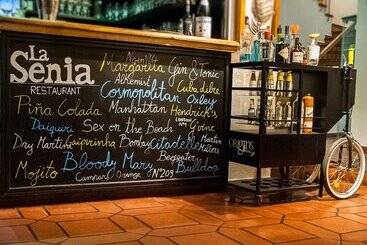 La
Sénia
RESTAURANT
Margarita Gin & Tonic
Alkemist Cuba dibre
Cosmopolitan Oxley
Piña Colada Manhattan Hendrick's
Daiquiri Sex on the Beach G'Vine
Dry Martini Caipirinha Bombay Citadelle Martin
Bloody Mary Beefeater Miller
Mojito Campari Orange Nº209 Bulldog
ORIGINS